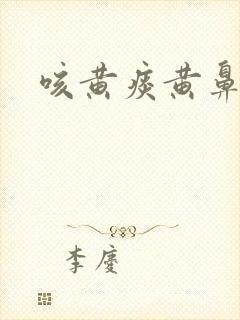 咳黄痰黄鼻
李庆